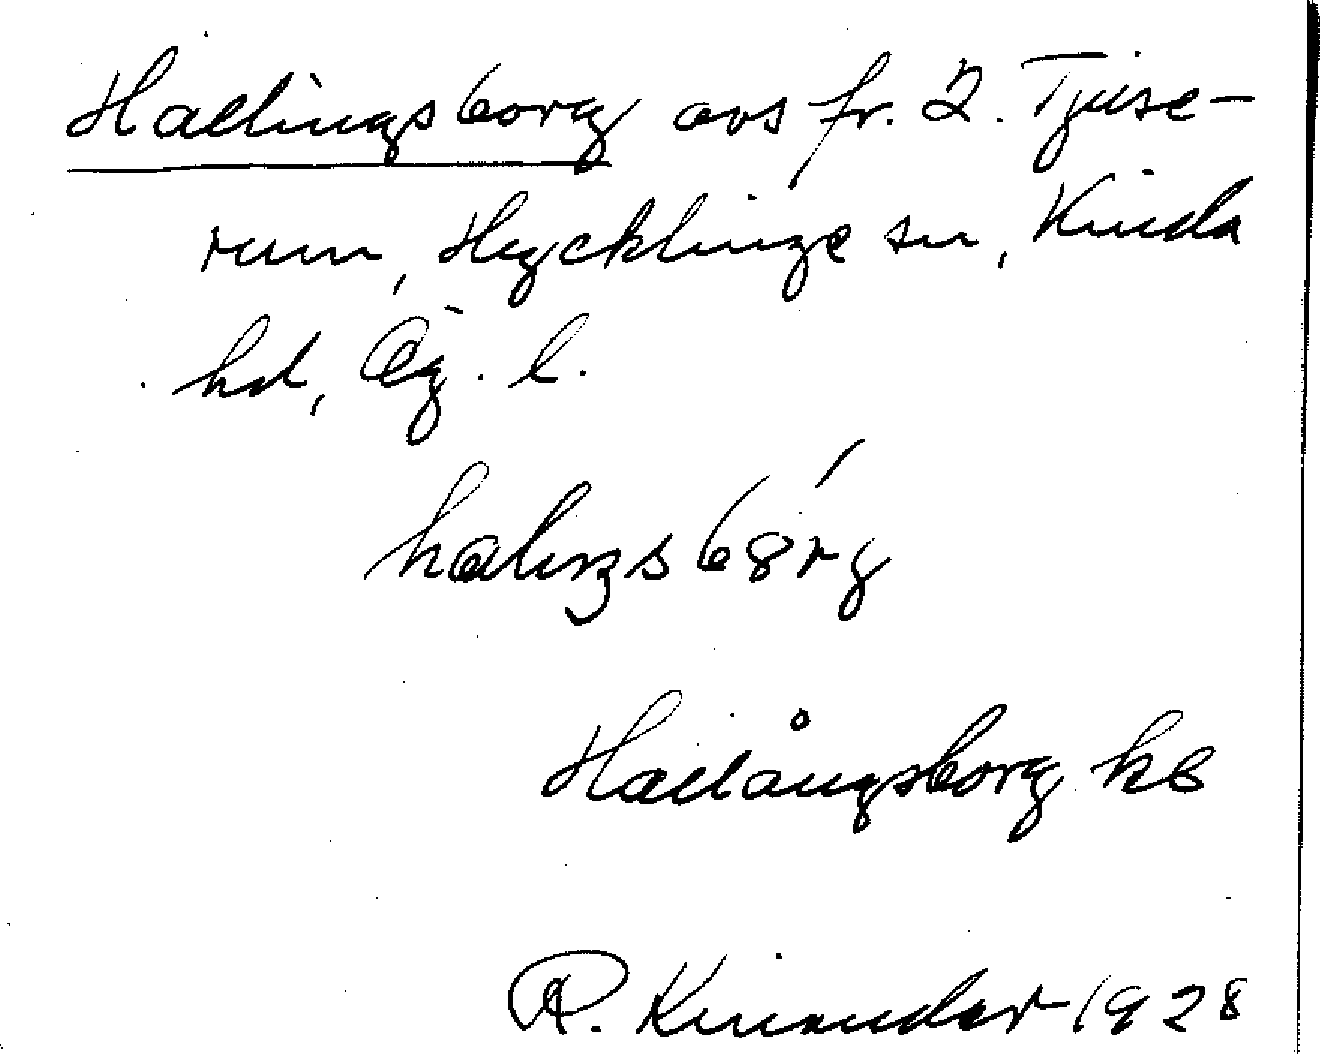 Hallingsborg avs fr. 2. Tjuse-
rum, Hycklinge sn, Kinda
hd, Ög. l.
halıŋsbȣrg
Hallångsborg kb
R. Kinander 1928